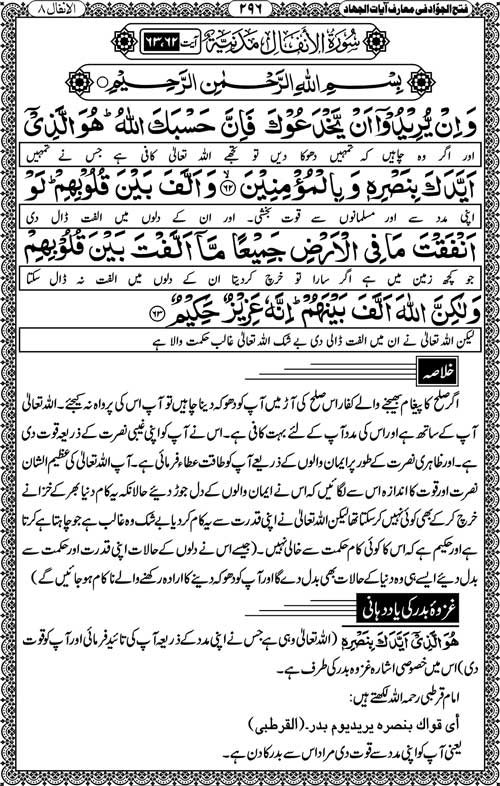 فتح الجوّاد فی معارف آیات الجهاد ٢٩٦ الانفال ٨
سُورَةُ الْاَنْفَالِ مَدَنِيَّةٌ آیت ٦٣،٦٢
بِسْمِ اللهِ الرَّحْمٰنِ الرَّحِيْمِ
وَاِنْ يُّرِيْدُوْٓا اَنْ يَّخْدَعُوْكَ فَاِنَّ حَسْبَكَ اللهُ ؕ هُوَ الَّذِيْٓ
اور اگر وہ چاہیں کہ تمہیں دھوکا دیں تو تجھے اللہ تعالیٰ کافی ہے جس نے تمہیں
اَيَّدَكَ بِنَصْرِهٖ وَبِالْمُؤْمِنِيْنَ ﴿٦٢﴾ وَاَلَّفَ بَيْنَ قُلُوْبِهِمْ ؕ لَوْ
اپنی مدد سے اور مسلمانوں سے قوت بخشی۔ اور ان کے دلوں میں الفت ڈال دی
اَنْفَقْتَ مَا فِي الْاَرْضِ جَمِيْعًا مَّآ اَلَّفْتَ بَيْنَ قُلُوْبِهِمْ
جو کچھ زمین میں ہے اگر سارا تو خرچ کردیتا ان کے دلوں میں الفت نہ ڈال سکتا
وَلٰكِنَّ اللهَ اَلَّفَ بَيْنَهُمْ ؕ اِنَّهٗ عَزِيْزٌ حَكِيْمٌ ﴿٦٣﴾
لیکن اللہ تعالیٰ نے ان میں الفت ڈالی دی بے شک اللہ تعالیٰ غالب حکمت والا ہے
خلاصہ
اگر صلح کا پیغام بھیجنے والے کفار اس صلح کی آڑ میں آپ کو دھوکہ دینا چاہیں تو آپ اس کی پرواہ نہ کیجئے۔ اللہ تعالیٰ
آپ کے ساتھ ہے اور اس کی مدد آپ کے لئے بہت کافی ہے۔ اس نے آپ کو اپنی غیبی نصرت کے ذریعہ قوت دی
ہے۔ اور ظاہری نصرت کے طور پر ایمان والوں کے ذریعے آپ کو طاقت عطاء فرمائی ہے۔ آپ اللہ تعالیٰ کی عظیم الشان
نصرت اور قوت کا اندازہ اس سے لگائیں کہ اس نے ایمان والوں کے دل جوڑ دیئے حالانکہ یہ کام دنیا بھر کے خزانے
خرچ کر کے بھی کوئی نہیں کر سکتا تھا لیکن اللہ تعالیٰ نے اپنی قدرت سے یہ کام کر دیا بے شک وہ غالب ہے جو چاہتا ہے کرتا
ہے اور حکیم ہے کہ اس کا کوئی کام حکمت سے خالی نہیں۔ (جیسے اس نے دلوں کے حالات اپنی قدرت اور حکمت سے
بدل دیئے ایسے ہی وہ دنیا کے حالات بھی بدل دے گا اور آپ کو دھوکہ دینے کا ارادہ رکھنے والے ناکام ہو جائیں گے)
غزوۂ بدر کی یاد دہانی
هُوَ الَّذِيْٓ اَيَّدَكَ بِنَصْرِهٖ (اللہ تعالیٰ وہی ہے جس نے اپنی مدد کے ذریعہ آپ کی تائید فرمائی اور آپ کو قوت
دی) اس میں خصوصی اشارہ غزوہ بدر کی طرف ہے۔
امام قرطبی رحمہ اللہ لکھتے ہیں:
أی قواك بنصره يريد يوم بدر۔ (القرطبی)
یعنی آپ کو اپنی مدد سے قوت دی مراد اس سے بدر کا دن ہے۔